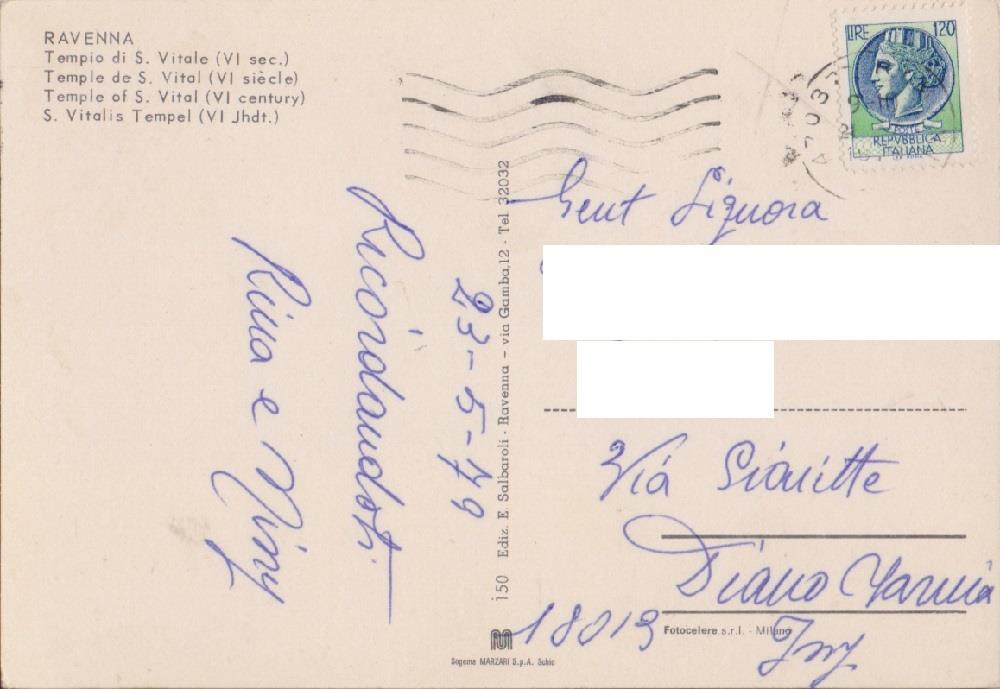 RAVENNA
Tempio di S. Vitale (VI sec.)
Temple de S. Vital (VI siècle)
Temple of S. Vital (VI century)
S. Vitalis Tempel (VI Jhdt.)
LIRE 120
POSTE
REPVBBLICA
ITALIANA
23-5-79
Ricordandoti
Rina e
150 Ediz. E. Salbaroli - Ravenna - via Gamba,12 - Tel. 32032
Gent Signora
Via
Diano
18013
Fotocelere s.r.l. - Milano
Sogema MARZARI S.p.A. Schio